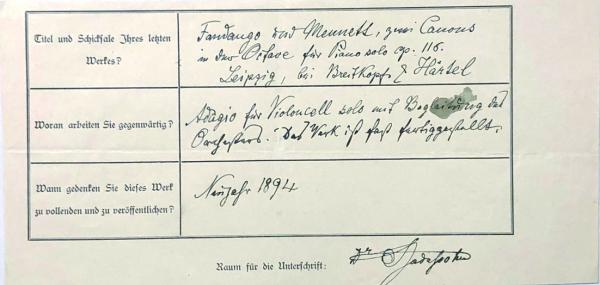 Titel und Schicksale Ihres letzten
Werkes?
Fandango und Menuett, zwei Canons
in der Octave für Piano solo op. 116.
Leipzig, bei Breitkopf & Härtel
Woran arbeiten Sie gegenwärtig?
Adagio für Violoncell solo mit Begleitung des
Orchesters. Das Werk ist fast fertiggestellt.
Wann gedenken Sie dieses Werk
zu vollenden und zu veröffentlichen?
Neujahr 1894
Raum für die Unterschrift:
Dr Jadassohn